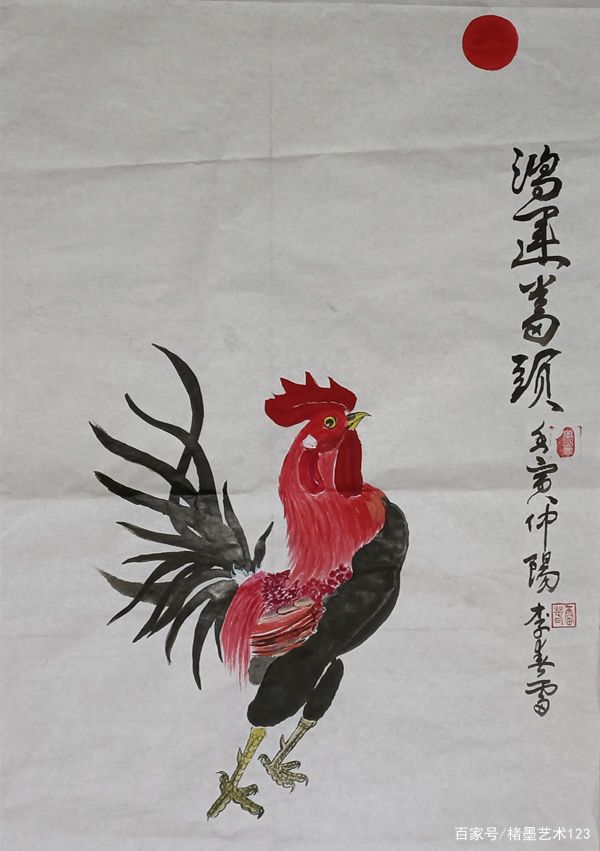 鸿运當頭
壬寅仲陽
李春雷
百家号/楮墨艺术123